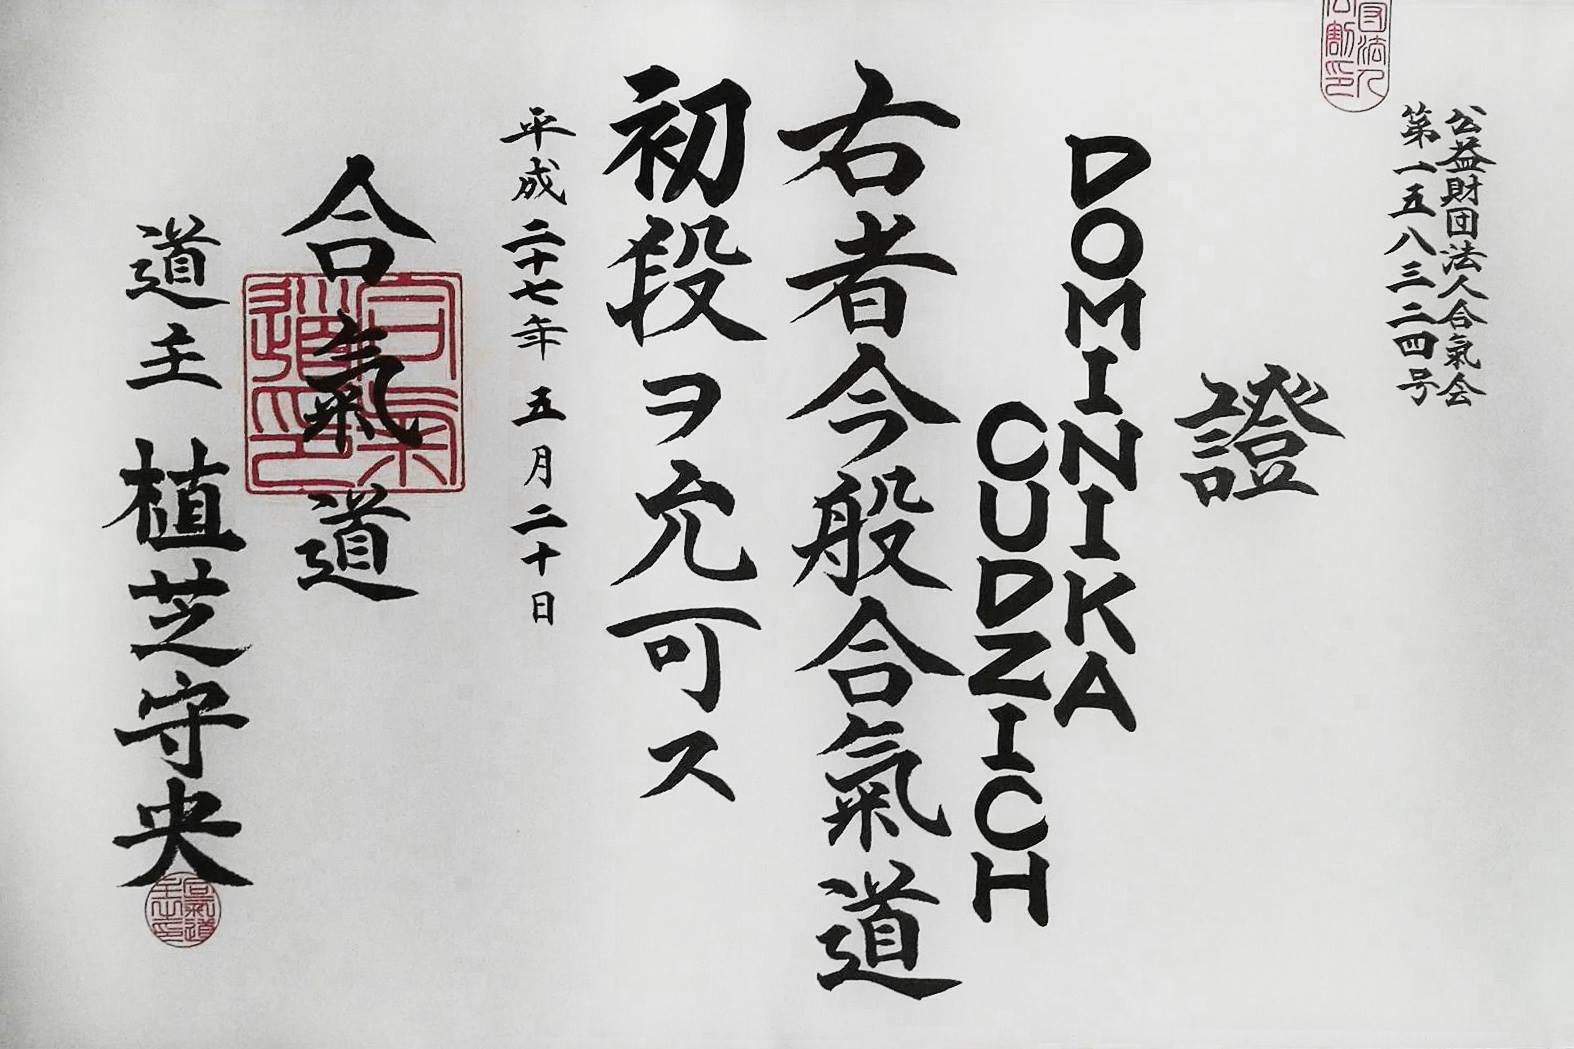 公益財団法人合氣会
第一五八三二四号
證
DOMINIKA
CUDZICH
右者今般合氣道
初段ヲ允可ス
平成二十七年五月二十日
合氣道
道主 植芝守央
合氣道印